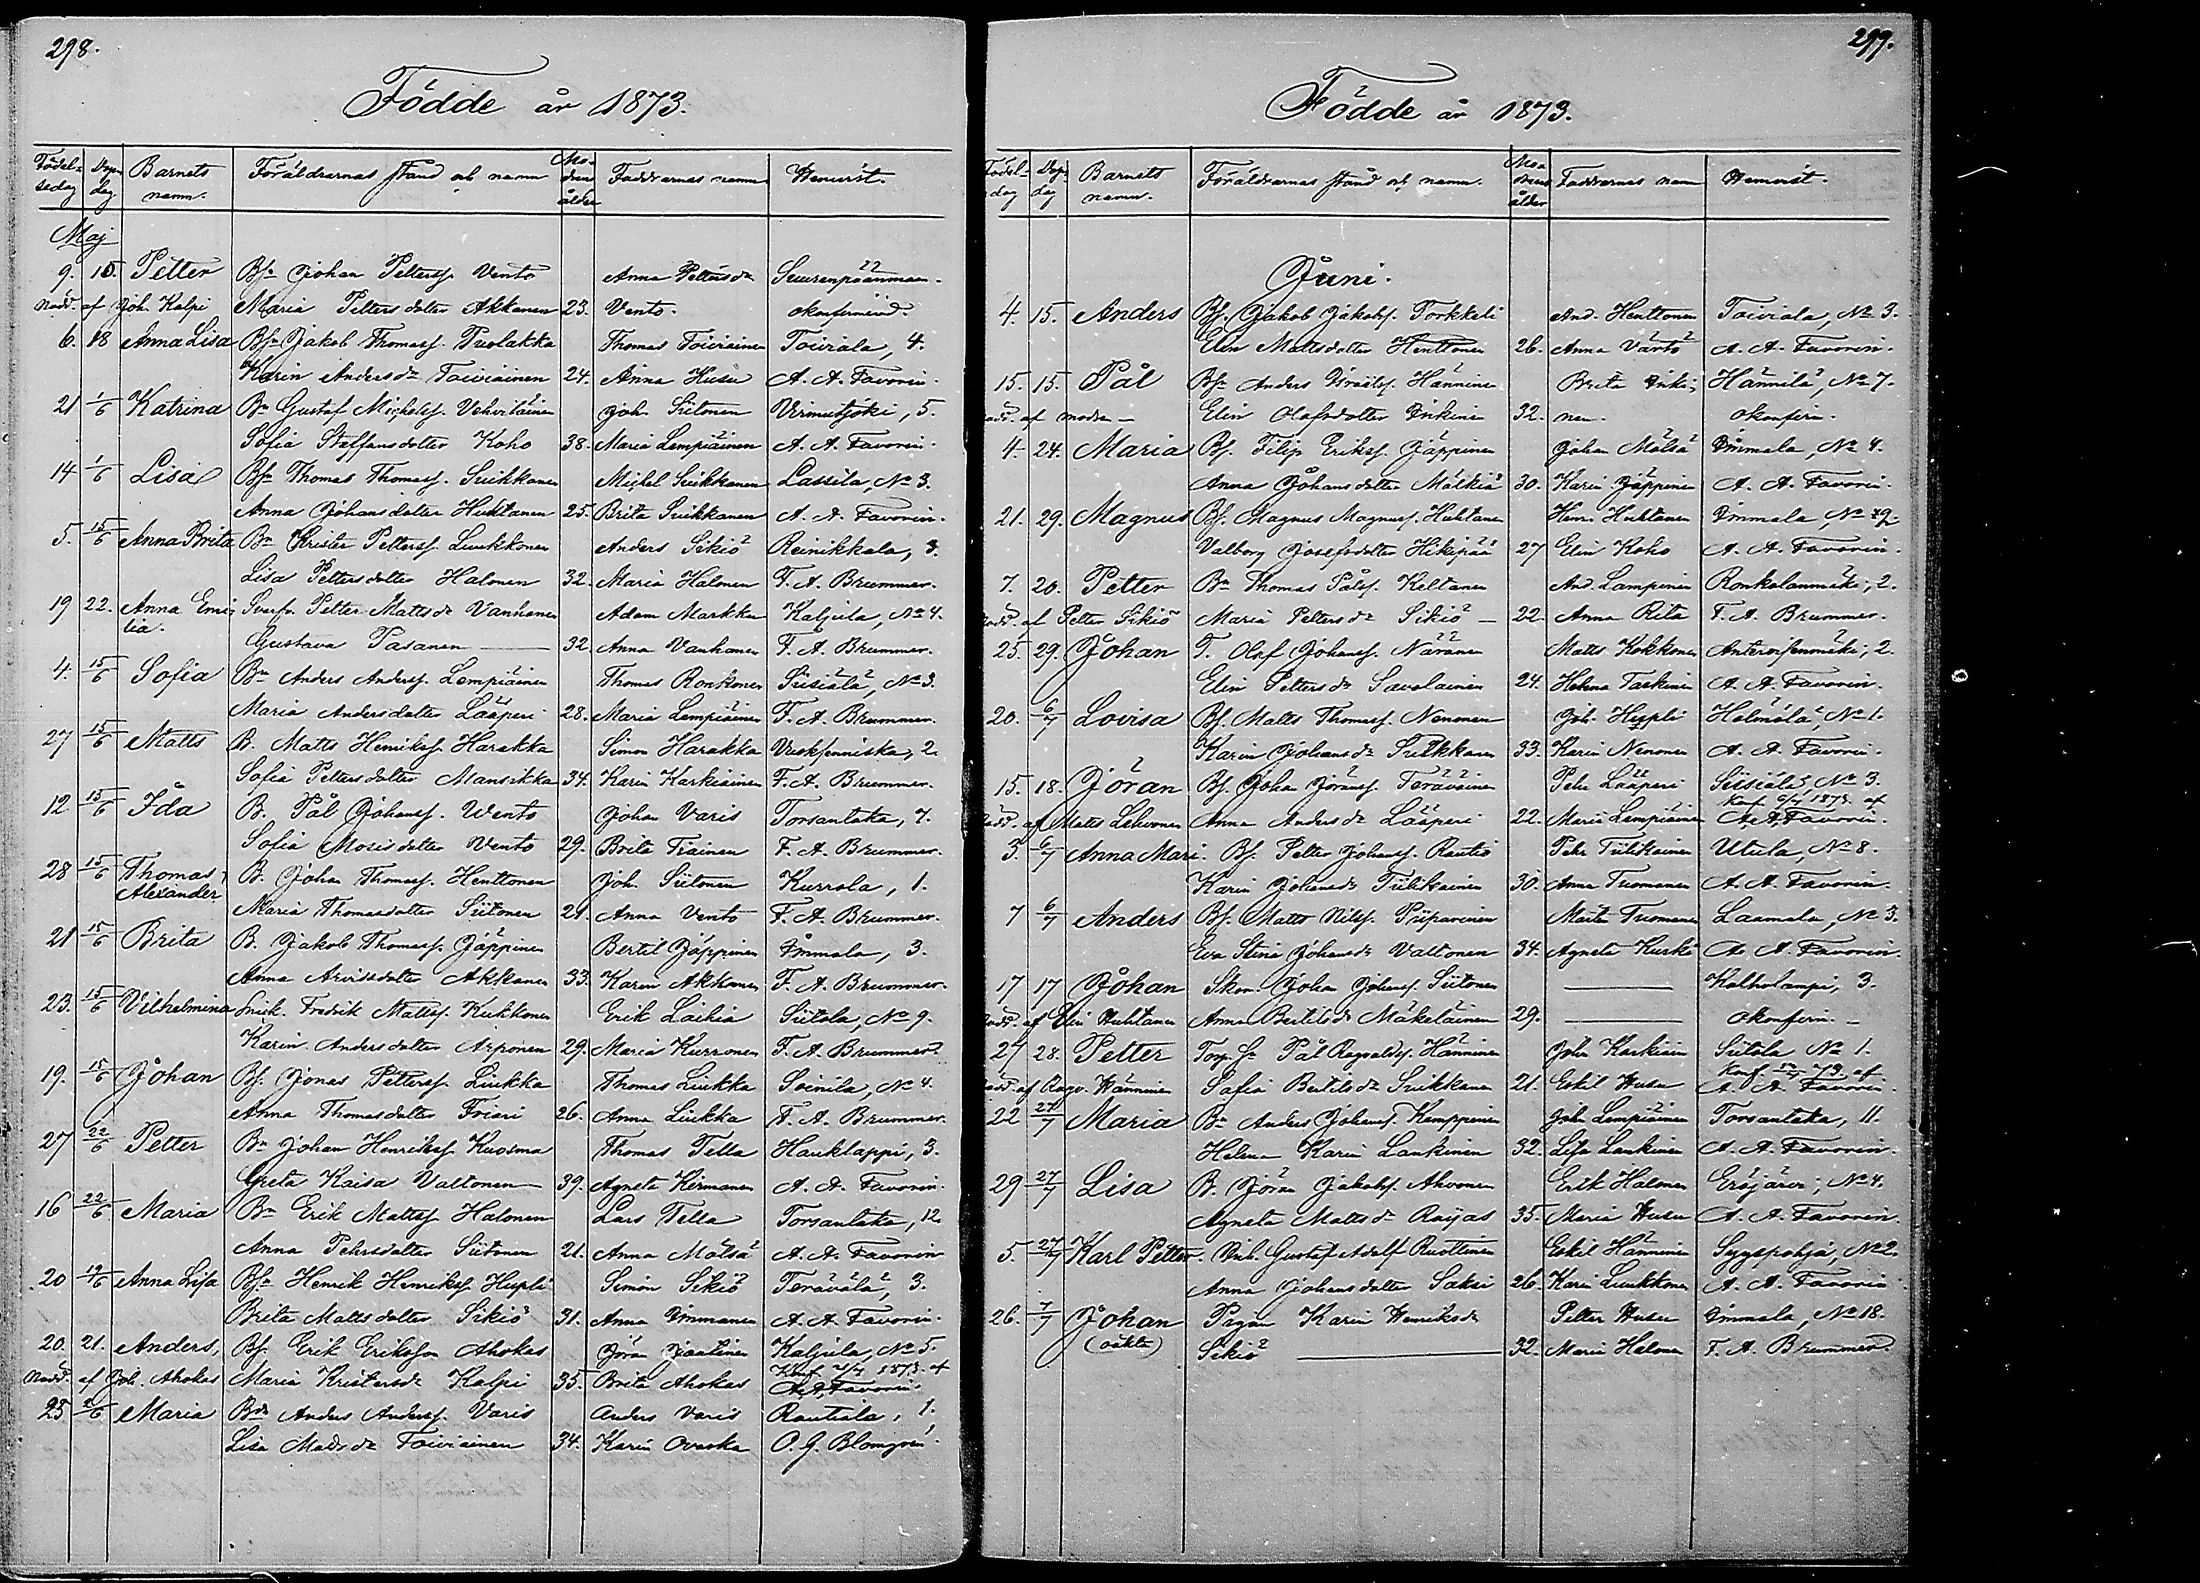 298.
Födde år 1873.
Födelsedag Dopdag Barnets namn. Föräldrarnas stånd och namn Moderns ålder Faddrarnas namn Hemvist.
Maj
9. 10. Petter Bfr Johan Petterss. Vento Anna Pettersdr Suurenpäänmaa
Nödd. af Joh. Kalpi Maria Petters dotter Akkanen 23. Vento. okonfirmerad.
6. 18 Anna Lisa Bfr Jakob Thomass. Puolakka Thomas Toiviainen Toiviala, 4.
Karin Andersdr Toiviainen 24. Anna Husu A. A. Favorin.
21 1/6 Katrina Bn Gustaf Michelss. Vehviläinen Joh. Siitonen Virmutjoki, 5.
Sofia Staffansdotter Koho 38. Maria Lempiäinen A. A. Favorin.
14 1/6 Lisa Bfr Thomas Thomass. Suikkanen Michel Suikkanen Lassila, No 3.
Anna Johansdotter Huhtanen 25. Brita Suikkanen A. A. Favorin.
5. 15/6 Anna Brita Bn Krister Petterss. Luukkonen Anders Sikiö Reinikkala, 3.
Lisa Pettersdotter Halonen 32. Maria Halonen F. A. Brummer.
19 22. Anna Emilia. Svarfv. Petter Mattsdr Vanhanen Adam Markka Kaljula, No 4.
Gustava Pasanen 32. Anna Vanhanen F. A. Brummer.
4. 15/6 Sofia Bn Anders Anderss. Lempiäinen Thomas Ronkonen Siisiälä, No 3.
Maria Andersdotter Lääperi 28. Maria Lempiäinen F. A. Brummer.
27 15/6 Matts B. Matts Henrikss. Harakka Simon Harakka Vuoksenniska, 2.
Sofia Pettersdotter Mansikka 34. Karin Karkiainen F. A. Brummer.
12 15/6 Ida B. Pål Johanss. Wento Johan Varis Torsantaka, 7.
Sofia Mosisdotter Vento 29. Brita Tiainen F. A. Brummer.
28 15/6 Thomas Alexander B. Johan Thomass. Henttonen Joh. Siitonen Kurrola, 1.
Maria Thomasdotter Siitonen 21. Anna Vento F. A. Brummer.
21 15/6 Brita B. Jakob Thomass. Jäppinen Bertil Jäppinen Immala, 3.
Anna Arvidsdotter Akkanen 33. Karin Akkanen F. A. Brummer.
23. 15/6 Vilhelmina Fredrik Matss. Kukkonen Erik Laikia Siitola, No 9.
Karin Andersdotter Arponen 29. Maria Kurronen F. A. Brummer.
19. 15/6 Johan Bf. Jonas Petterss. Liukka Thomas Liukka Soinila, No 4.
Anna Thomasdotter Friari 26. Anna Liukka F. A. Brummer.
27 22/6 Petter Bn Johan Henrikss. Kuosma Thomas Tella Hauklappi, 3.
Greta Kaisa Valtonen 39. Agneta Kirmanen A. A. Favorin.
16 22/6 Maria Bn Erik Mattss. Halonen Lars Tella Torsantaka, 12.
Anna Pehrsdotter Siitonen 21. Anna Mälsä A. A. Favorin
20 19/6 Anna Lisa Bfr Henrik Henrikss. Huppli Simon Sikiö Terävälä, 3.
Brita Mattsdotter Sikiö 31. Anna Immanen A. A. Favorin.
20. 21. Anders, Bf. Erik Eriksson Ahokas Jöran Jantinen Kaljula, No 5.
Nödd. af Joh. Ahokas Maria Kristersdr Kalpi 35. Brita Ahokas Konf. 1873. af A. A. Favorin.
25 2/6 Maria Bdr Anders Anderss. Varis Anders Varis Rautiala, 1.
Lisa Madsdr Toiviainen 34. Karin Ovaska O. G. Blomqvi

299.
Födde år 1873.
Födelsedag Dopdag Barnets namn. Föräldrarnas stånd och namn. Moderns ålder Faddrarnas namn Hemvist.
Juni.
4. 15. Anders Bf. Jakob Jakobss. Torkkeli And. Henttonen Toiviala, No 3.
Elin Mattsdotter Henttonen 26. Anna Värtö A. A. Favorin.
15. 15. Pål Bfr Anders Israelss. Hänninen Brita Inki- Hännilä, No 7.
nödd. af modren Elin Olofsdotter Inkinen 32. nen. okonfirm.
4. 24. Maria Bf. Filip Erikss. Jäppinen Johan Mälsä Immala, No 4.
Anna Johansdotter Mälkiä 30. Karin Jäppinen A. A. Favorin.
21. 29. Magnus Bf. Magnus Magnuss. Huhtanen Henr. Huhtanen Immala, No
Valborg Josefsdotter Hikipää 27 Elin Koho A. A. Favorin.
7. 20. Petter Bn Thomas Pålss. Keltanen And. Lampinen Ronkolanmäki, 2.
nödd. af Petter Sikiö Maria Pettersdr Sikiö 22. Anna Rita F. A. Brummer.
25. 29. Johan T. Olof Johanss. Näränen Matts Kokkonen 2.
Elin Pettersdr Savolainen 24. Helena Taskinen A. A. Favorin.
20. 6/7 Lovisa Bf. Matts Thomass. Nenonen Joh. Huppli No 1.
Karin Johansdr Suikkanen 33. Karin Nenonen A. A. Favorin.
15. 18. Jöran Bf. Johan Jöranss. Teräväinen Pehr Lääperi Siisiälä, No 3.
nödd. af Matts Lehvonen Anna Andersdr Lääperi 22. Maria Lempiäinen Konf. 1873. af A. A. Favorin.
3. 6/7 Anna Mari. Bf. Petter Johanss. Rautio Pehr Tiilikainen Utula, No 8.
Karin Johansdr Tiilikainen 30. Anna Tuomanen A. A. Favorin.
7 6/7 Anders Bf. Matts Nilss. Piiparinen Martin Tuomanen Laamala, No 3.
Eva Stina Johansdr Valtonen 34. Agneta Kurki A. A. Favorin.
17 17 Johan Skom. Johan Johanss. Siitonen Kalholampi, 3.
nödd. af Elin Huhtanen Anna Bertilsdr Mäkeläinen 29. okonfirm.
27 28. Petter Torp. Sn Pål Ragvaldss. Hänninen John Karkiain Siitola No 1.
nödd. af Ragv. Hänninen Sofia Bertilsdr Suikkanen 21. Eskil Husu Konf. 73. af A. A. Favorin.
22 27/7 Maria Bn Anders Johanss. Kemppinen John Lempiäinen Torsantaka, 11.
Helena Karin Lankinen 32. Lisa Lankinen A. A. Favorin.
29 27/7 Lisa B. Jöran Jakobss. Ahvonen Erik Halonen Eräjärvi, No 4.
Agneta Mattsdr Raijas 35. Maria Husu A. A. Favorin.
5. 27/7 Karl Petter. Inh. Gustaf Adolf Ruottinen Eskil Hänninen Syyspohja, No 2.
Anna Johansdotter Saksi 26. Karin Luukkonen A. A. Favorin
26. 7/7 Johan Pigan Karin Henriksdr Petter Husu Immala, No 18.
(oäkta) Sikiö 32. Maria Halonen F. A. Brummer.